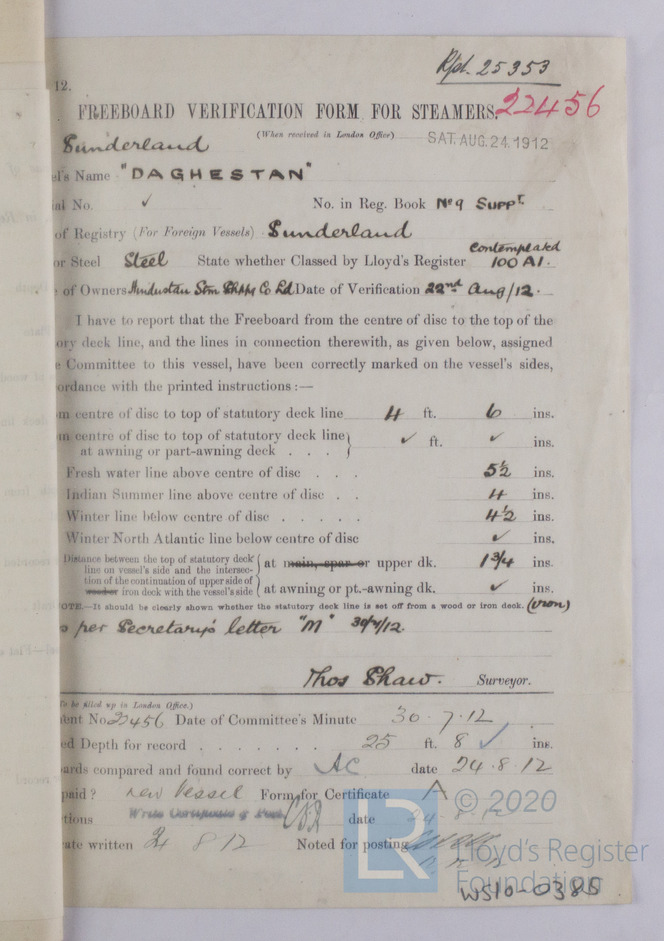 Rpt. 25353
12.
FREEBOARD VERIFICATION FORM FOR STEAMERS. 22456
(When received in London Office) SAT. AUG. 24. 1912
Sunderland
el's Name "DAGHESTAN"
al No. ✓ No. in Reg. Book No 9 Suppt.
of Registry (For Foreign Vessels) Sunderland
or Steel Steel State whether Classed by Lloyd's Register contemplated 100 A1.
of Owners Hindustan Stm Shipg Co Ld Date of Verification 22nd Aug/12.
I have to report that the Freeboard from the centre of disc to the top of the
ory deck line, and the lines in connection therewith, as given below, assigned
e Committee to this vessel, have been correctly marked on the vessel's sides,
ordance with the printed instructions :—
m centre of disc to top of statutory deck line 4 ft. 6 ins.
m centre of disc to top of statutory deck line
at awning or part-awning deck . . . ✓ ft. ✓ ins.
Fresh water line above centre of disc . . . 5½ ins.
Indian Summer line above centre of disc . . 4 ins.
Winter line below centre of disc . . . . . 4½ ins.
Winter North Atlantic line below centre of disc ✓ ins.
Distance between the top of statutory deck
line on vessel's side and the intersec- at main, spar or upper dk. 1¾ ins.
tion of the continuation of upper side of
wooden iron deck with the vessel's side at awning or pt.-awning dk. ✓ ins.
OTE.—It should be clearly shown whether the statutory deck line is set off from a wood or iron deck. (iron)
s per Secretary's letter "M" 30/7/12.
Thos Shaw. Surveyor.
To be filled up in London Office.)
ent No 22456 Date of Committee's Minute 30.7.12
ed Depth for record . . . . . . . 25 ft. 8 ✓ ins.
ards compared and found correct by AC date 24.8.12
paid? new Vessel Form for Certificate A
tions Write Certificate & Post date 24.8.12
ate written 24 8 12 Noted for posting
© 2020
LR
Lloyd's Register
Foundation
WS10-0385